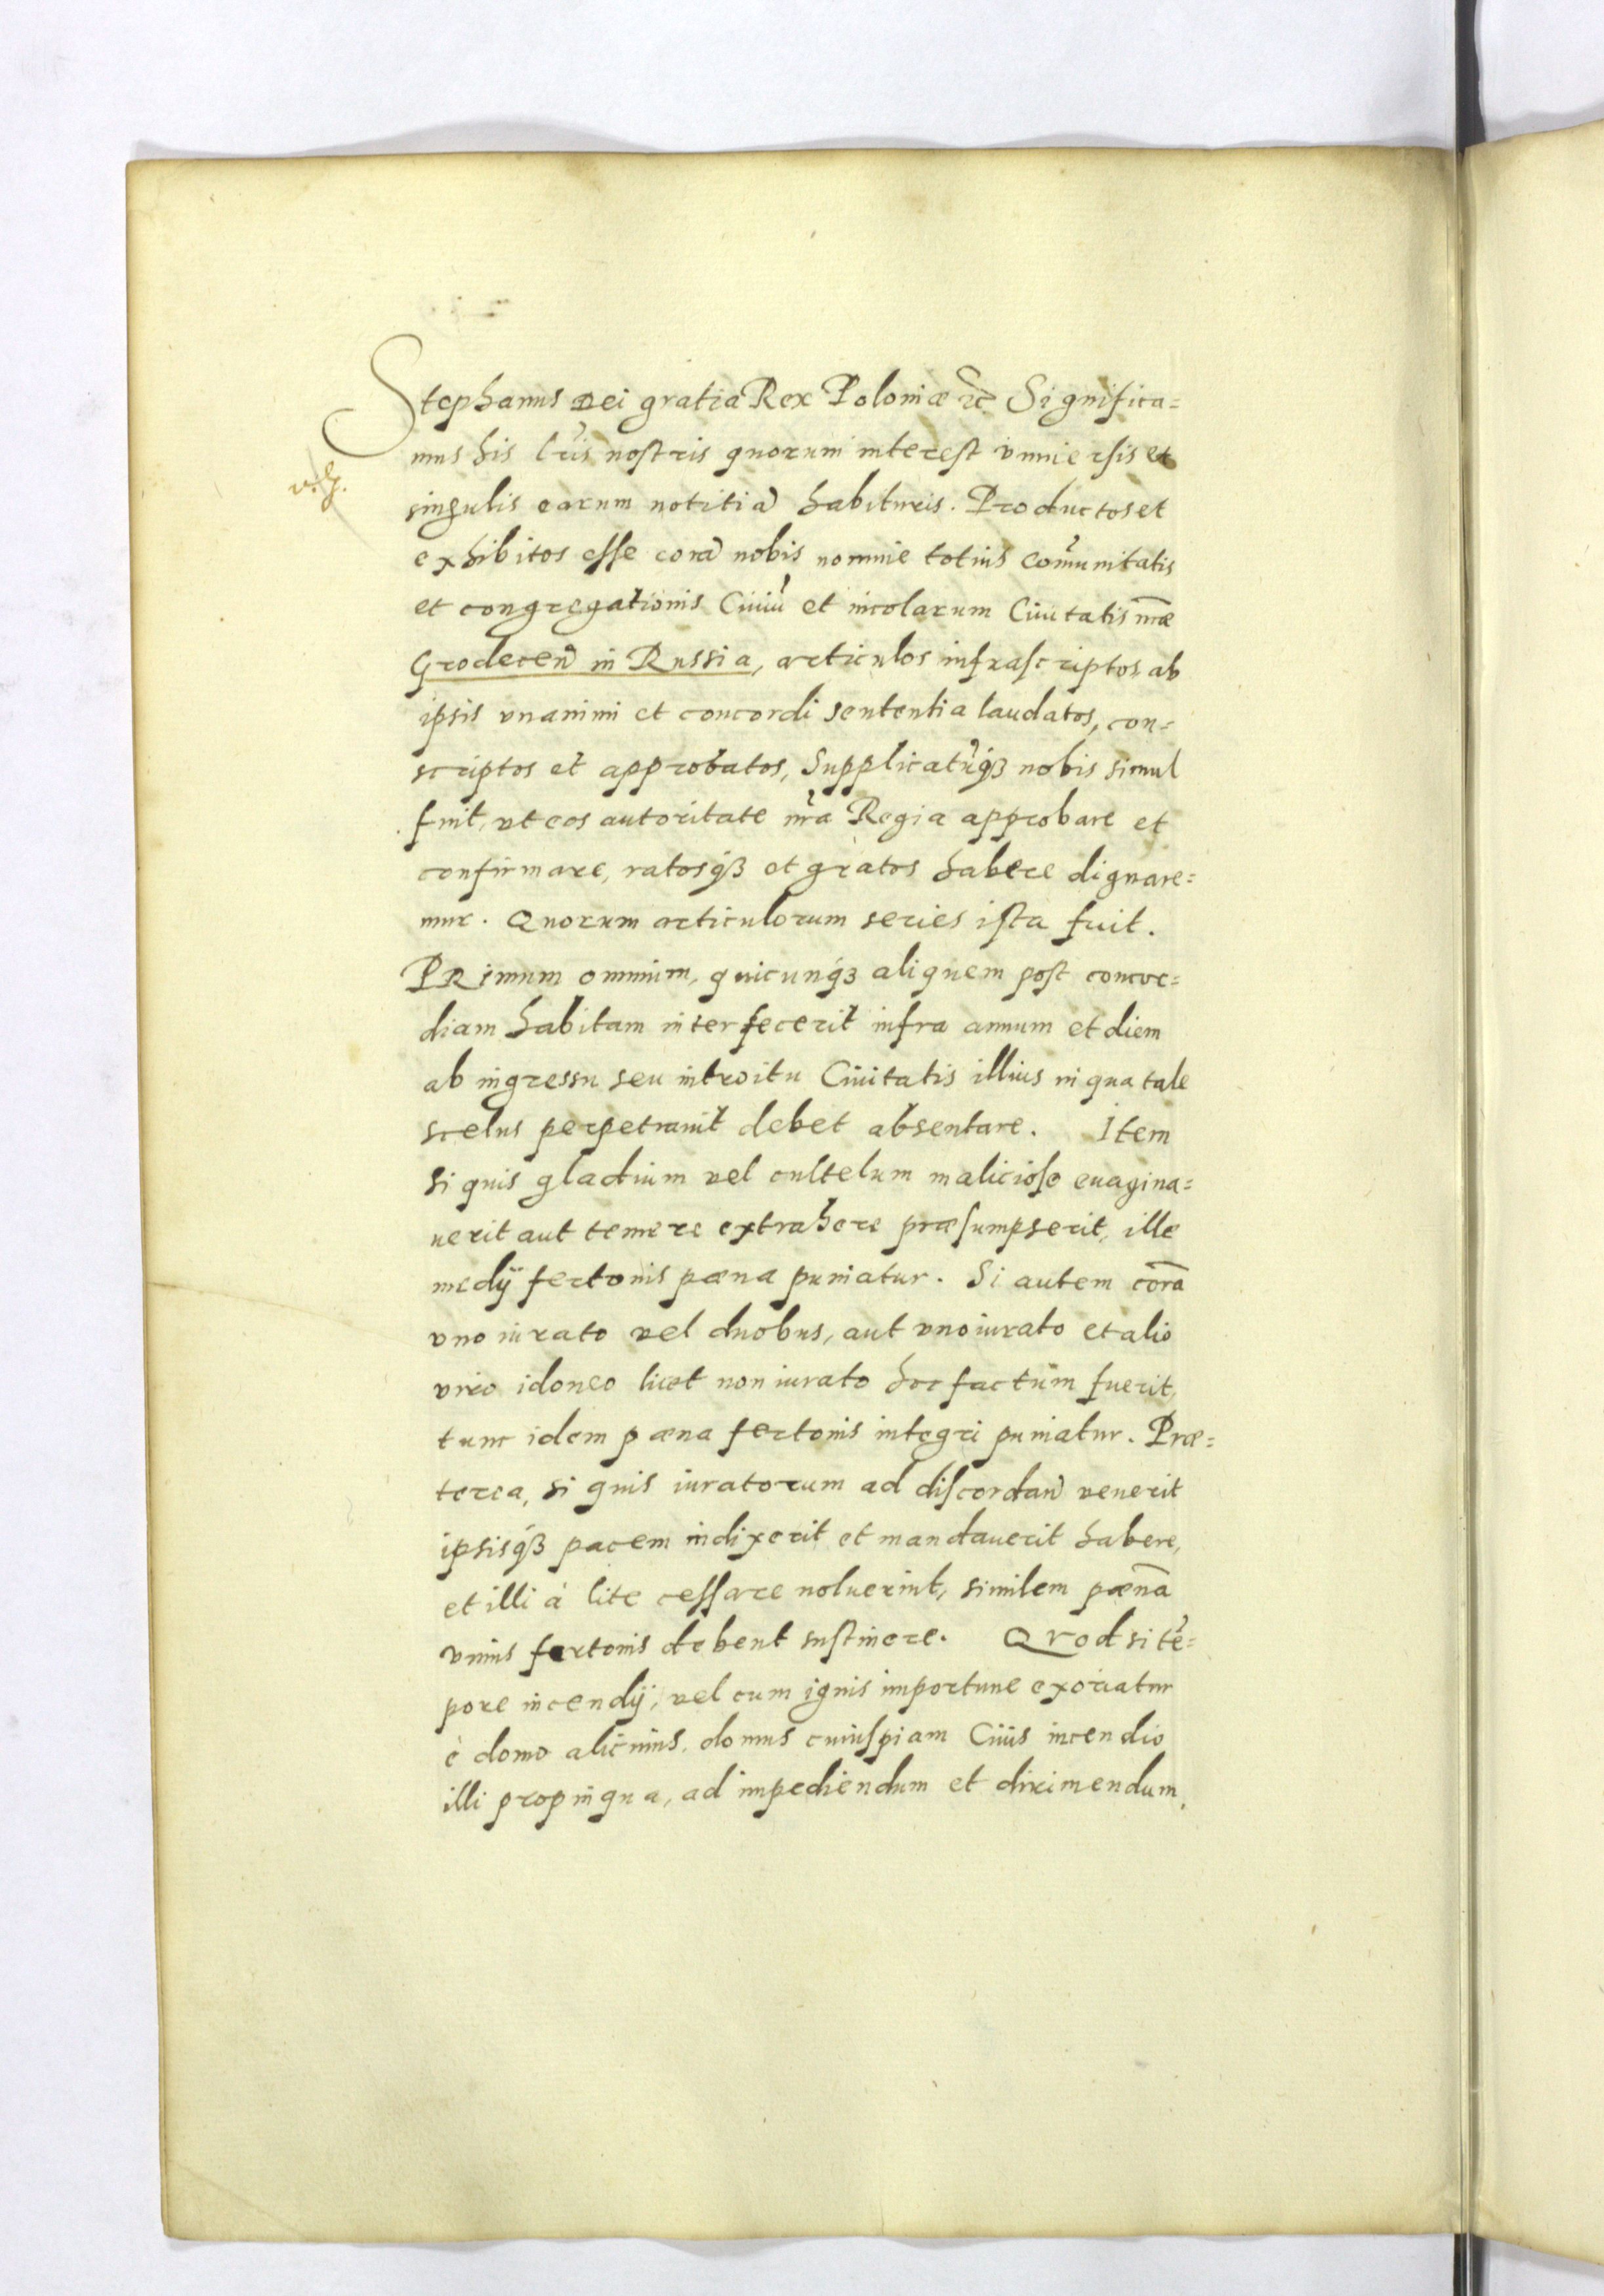 Stephanus Dei gratia Rex Poloniæ etc̃ Significa=
mus his lr̃is nostris quorum interest vniuersis et
singulis earum notitiã habituris. Productos et
exhibitos esse corã nobis nomine totius com̃unitatis
et congregationis Ciuiũ et incolarum Ciuitatis nr̃æ
Grodecen̄ in Russia, articulos infrascriptos ab
ipsis vnanimi et concordi sententia laudatos, con=
scriptos et approbatos, Supplicatũq́ꝫ nobis simul
fuit, vt eos autoritate nr̃a Regia approbare et
confirmare, ratosq́ꝫ et gratos habere dignare=
mur. Quorum articulorum series ista fuit.
PRimum omnium, quicunq́ꝫ aliquem post concor=
diam habitam interfecerit infra annum et diem
ab ingressu seu introitu Ciuitatis illius in qua tale
scelus perpetrauit debet absentare. Item
si quis gladium vel cultelum maliciose euagina=
uerit aut temere extrahere præsumpserit, ille
medij fertonis pœna puniatur. Si autem corā
vno iurato vel duobus, aut vno iurato et alio
viro idoneo licet non iurato hoc factum fuerit,
tunc idem pœna fertonis integri puniatur. Præ=
terea, si quis iuratorum ad discordan̄ venerit
ipsisq́ꝫ pacem indixerit et mandauerit habere,
et illi à lite cessare noluerint, similem pœnā
vnius fertonis debent sustinere. Qvod si tẽ=
pore incendij, vel cum ignis importune exoriatur
è domo alicuius, domus cuiuspiam Ciuis incendio
illi propinqua, ad impediendum et dirimendum,